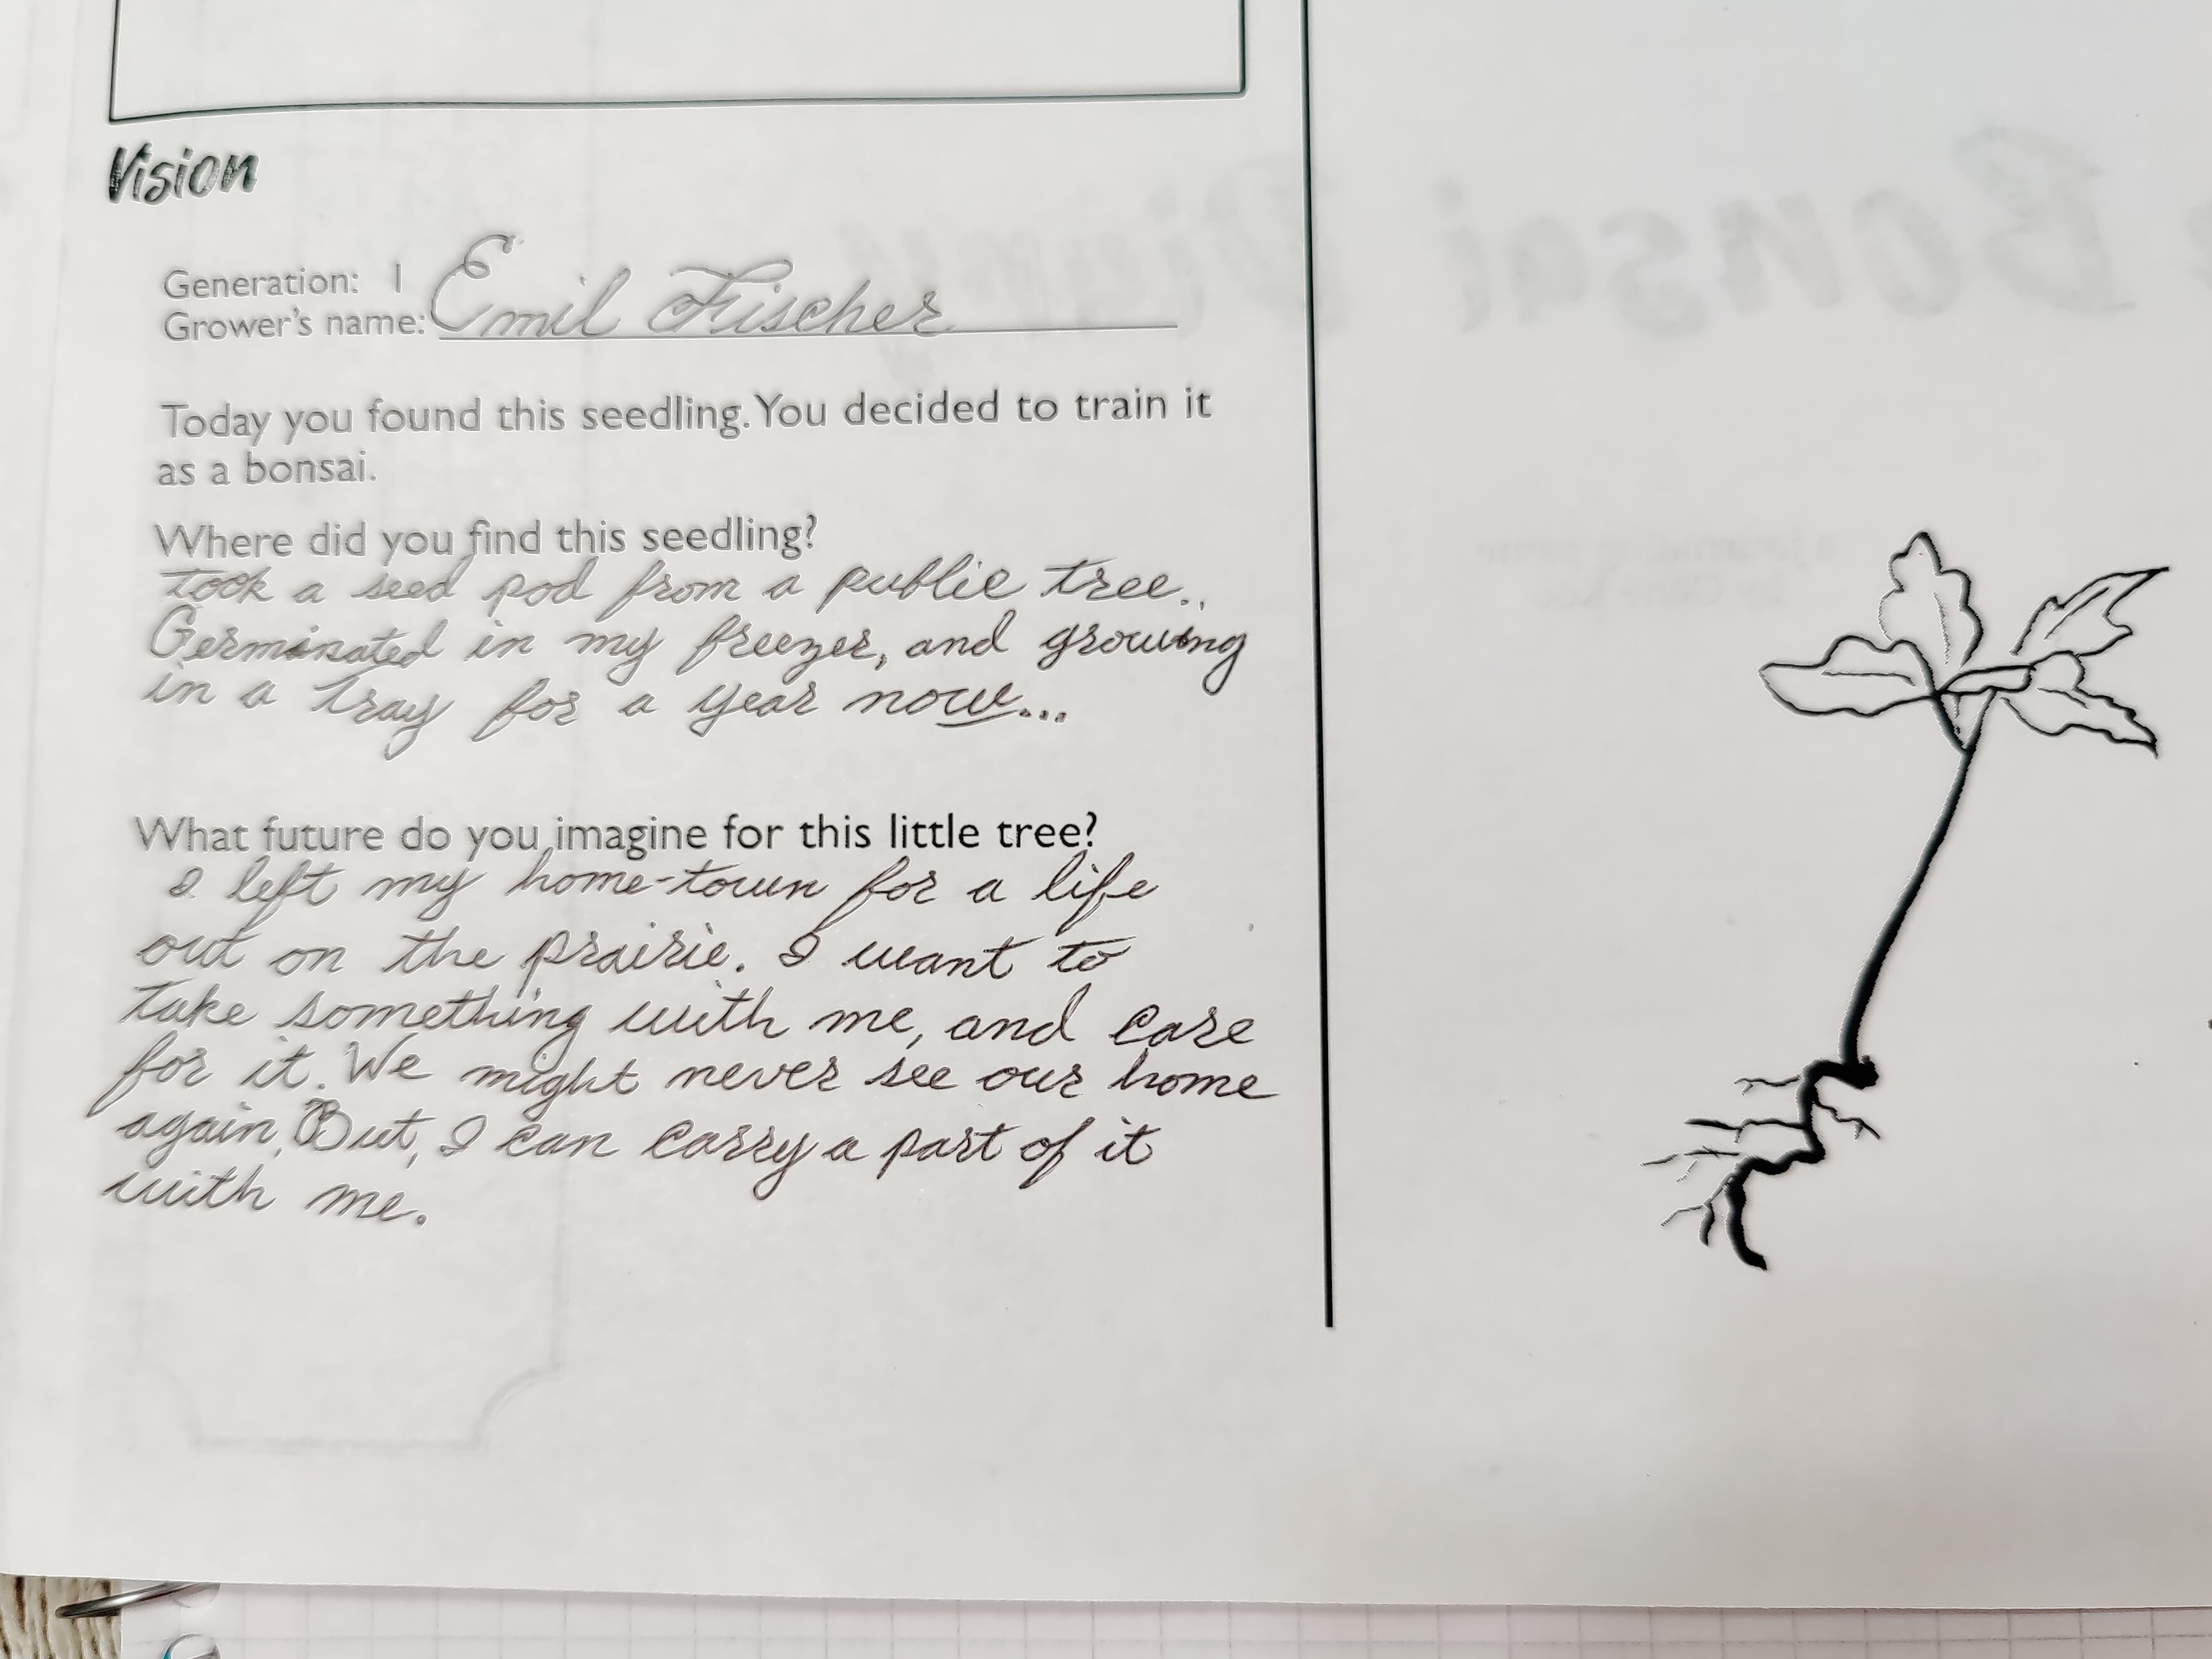 Vision
Generation: 1
Grower's name: Emil Fischer
Today you found this seedling. You decided to train it
as a bonsai.
Where did you find this seedling?
took a seed pod from a public tree..
Germinated in my freezer, and growing
in a tray for a year now...
What future do you imagine for this little tree?
I left my home-town for a life
out on the prairie. I want to
take something with me, and care
for it. We might never see our home
again, But, I can carry a part of it
with me.
Bonsai